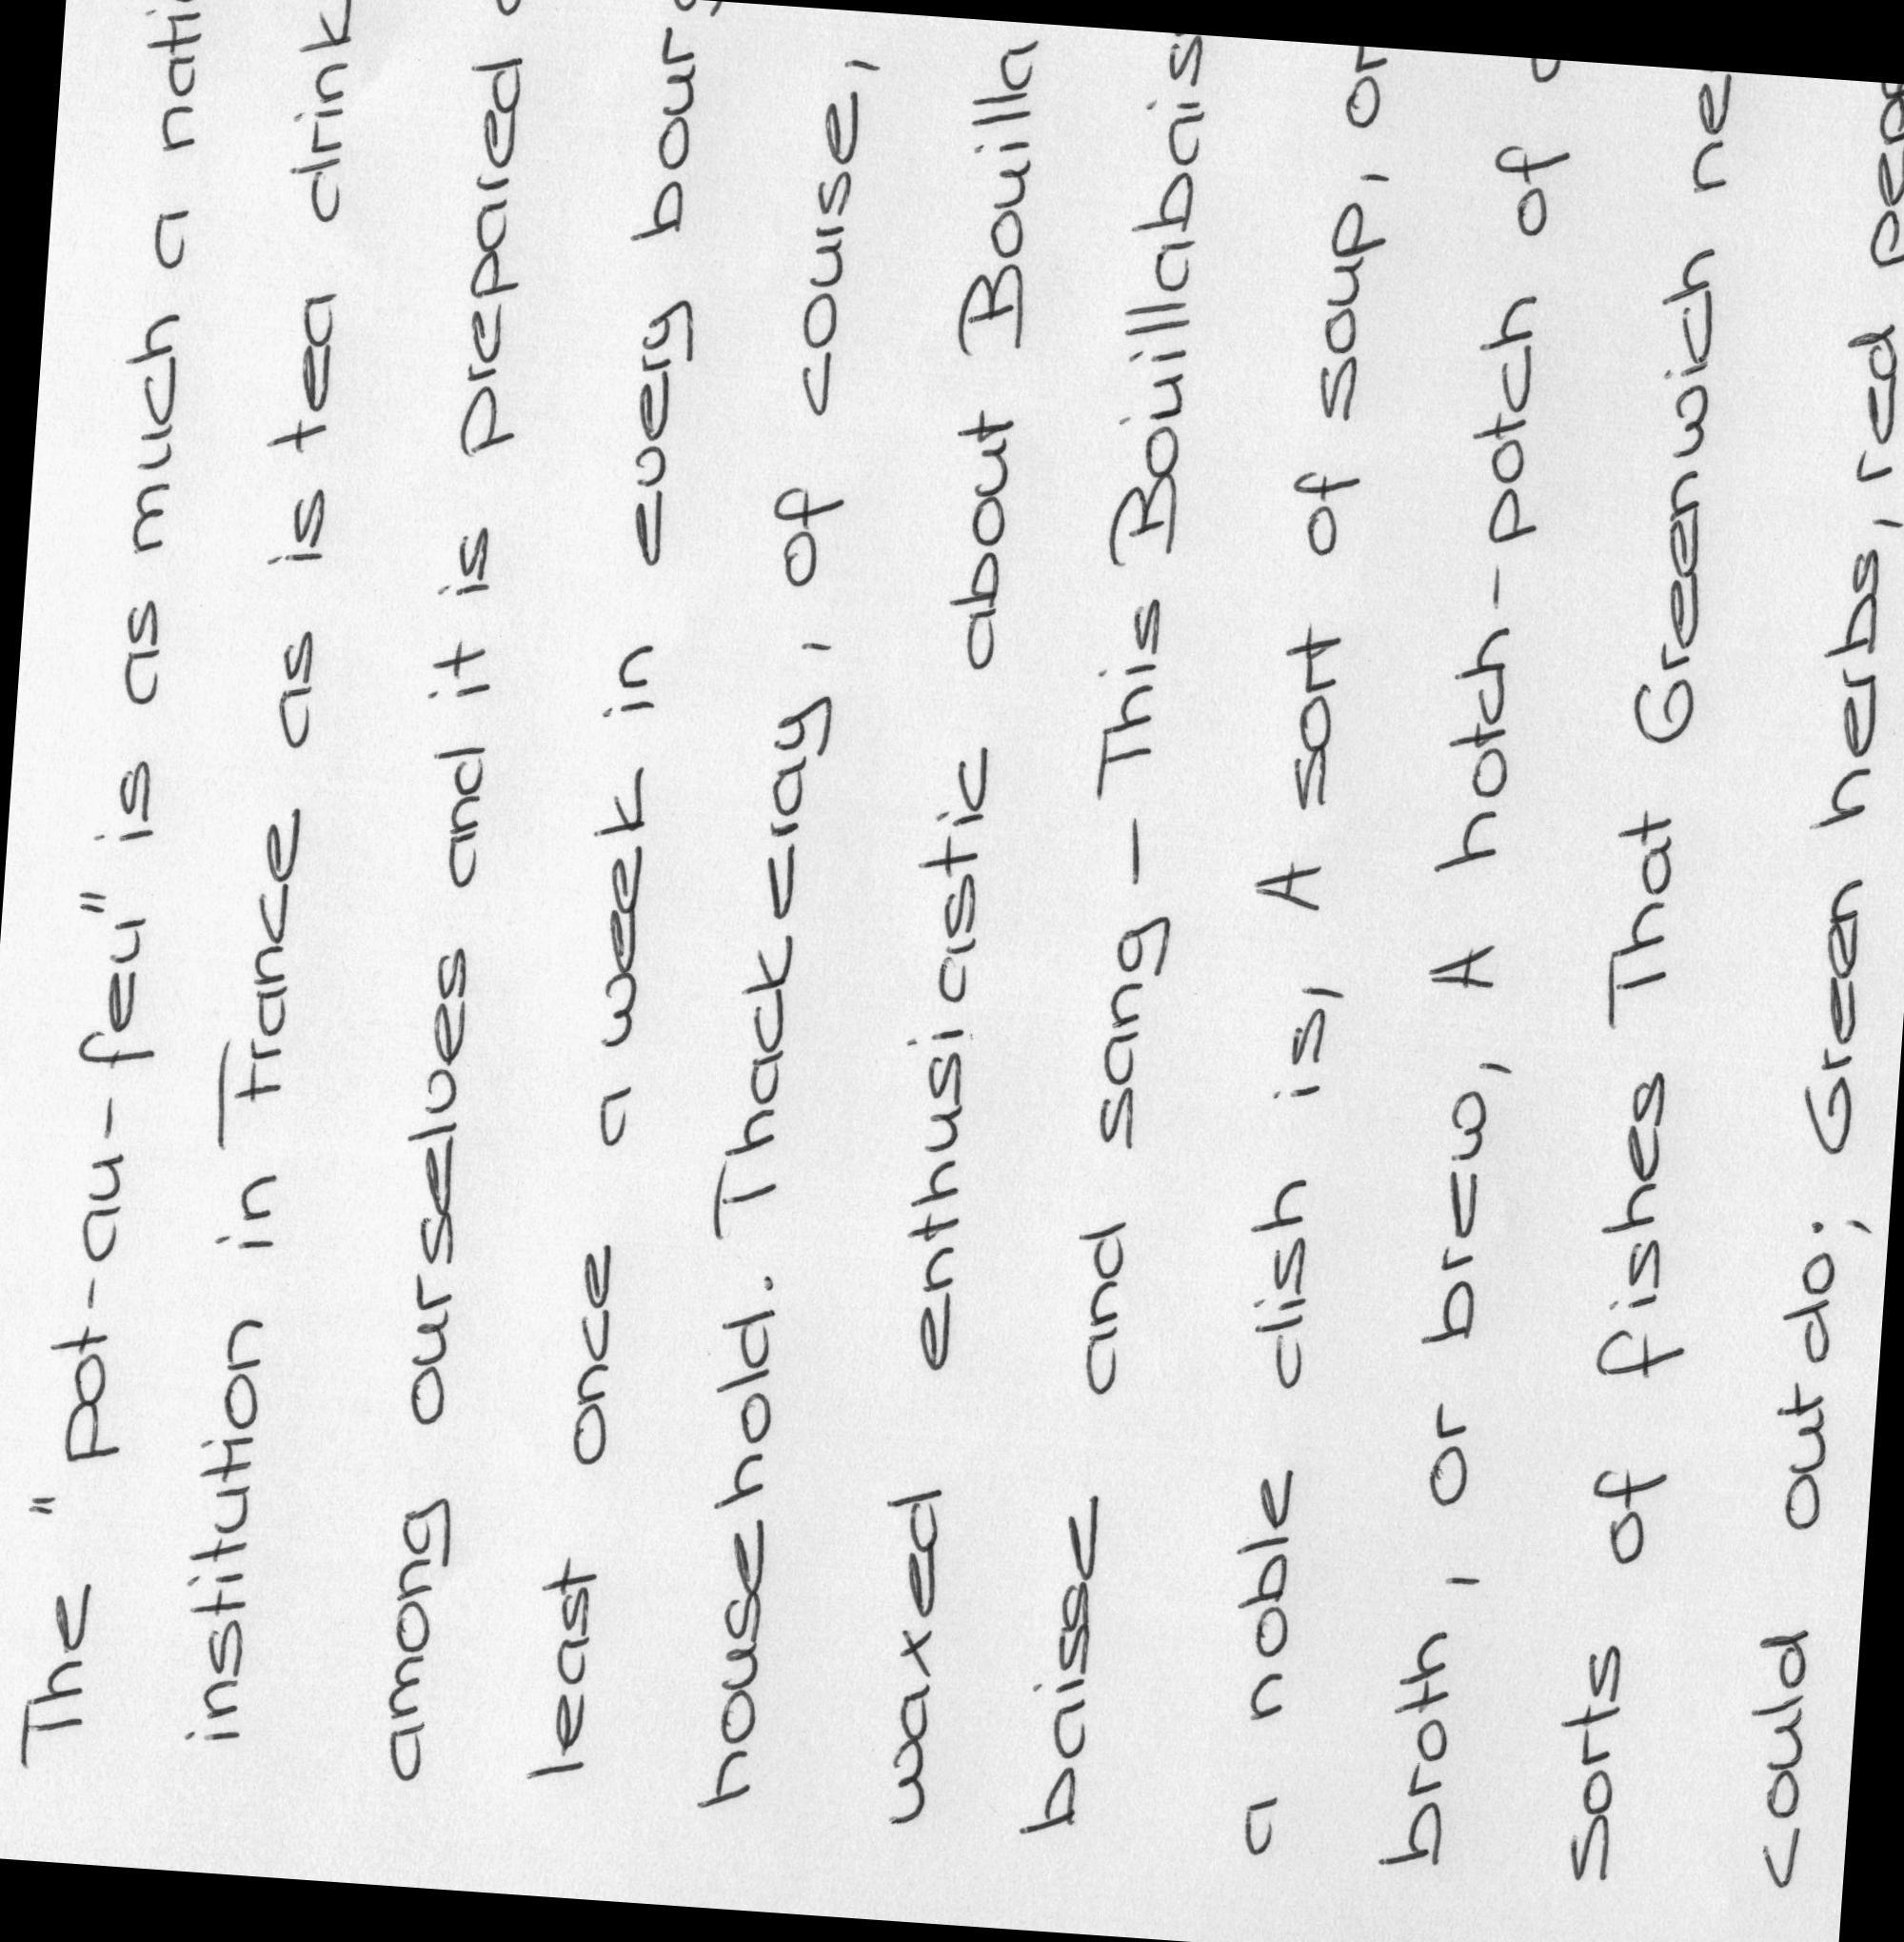 The "pot-au-feu" is as much a nati
institution in France as is tea drink
among ourselves and it is prepared
least once a week in every bourg
household. Thackeray, of course,
waxed enthusiastic about Bouilla
baisse and sang - This Bouillabais
a noble dish is, A sort of soup, or
broth, or brew, A hotch-potch of
sorts of fishes That Greenwich ne
could outdo; Green herbs, red pep